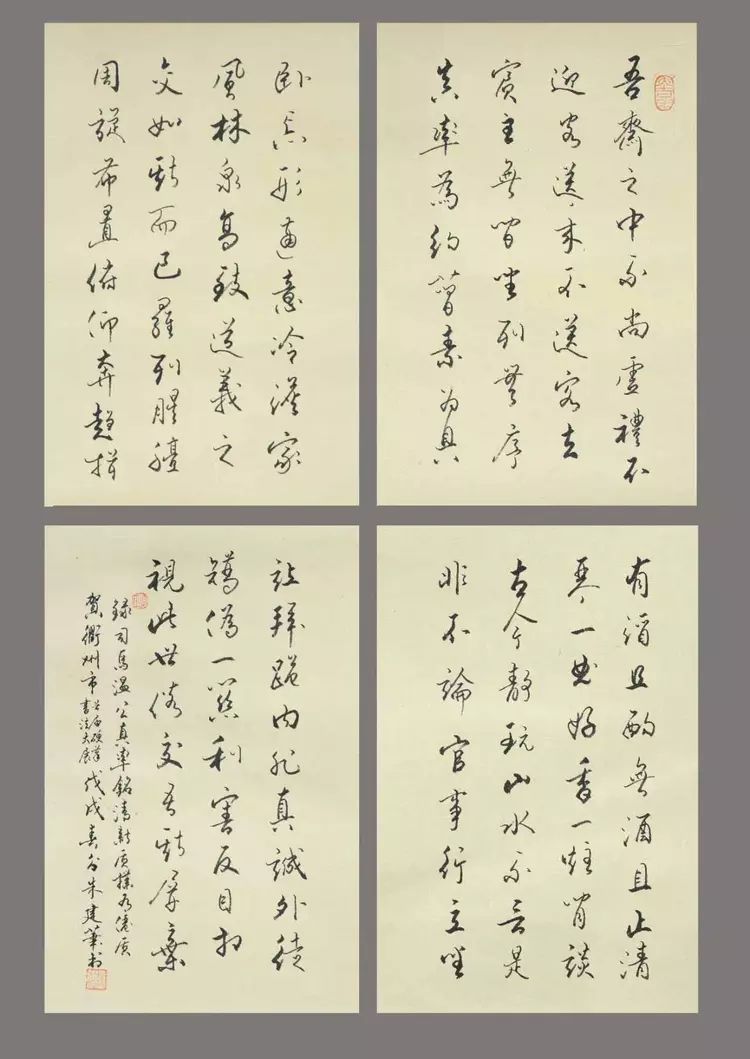 吾齋之中不尚虛禮不
迎客送來不送客去
賓主無間坐列無序
真率為約簡素為具
有酒且酌無酒且止清
琴一曲好香一炷閒談
古今靜玩山水不言是
非不論官事行立坐
臥忘形適意冷淡家
風林泉高致道義之
交如斯而已羅列腥膻
周旋布置俯仰奔趨揖
讓拜跪內非真誠外徒
矯偽一關利害反目相
視此世俗交吾斯屏棄
錄司馬溫公真率銘清新質樸
賀衢州市首屆硬筆書法大展戊戌春分朱建華書